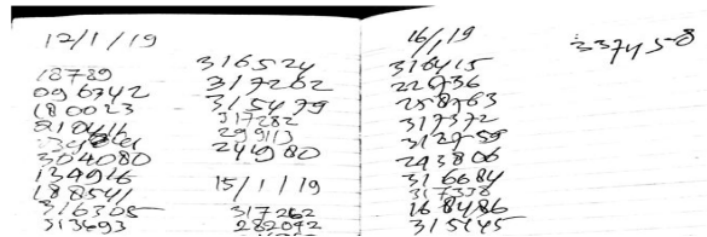 12/1/19
18789
096742
180023
210416
304080
134916
188541
316305
313693
316524
317262
315479
317282
299113
244980
15/1/19
317262
282042
16/1/19
316415
226736
258763
317372
312759
293806
316684
317338
168486
315445
337458